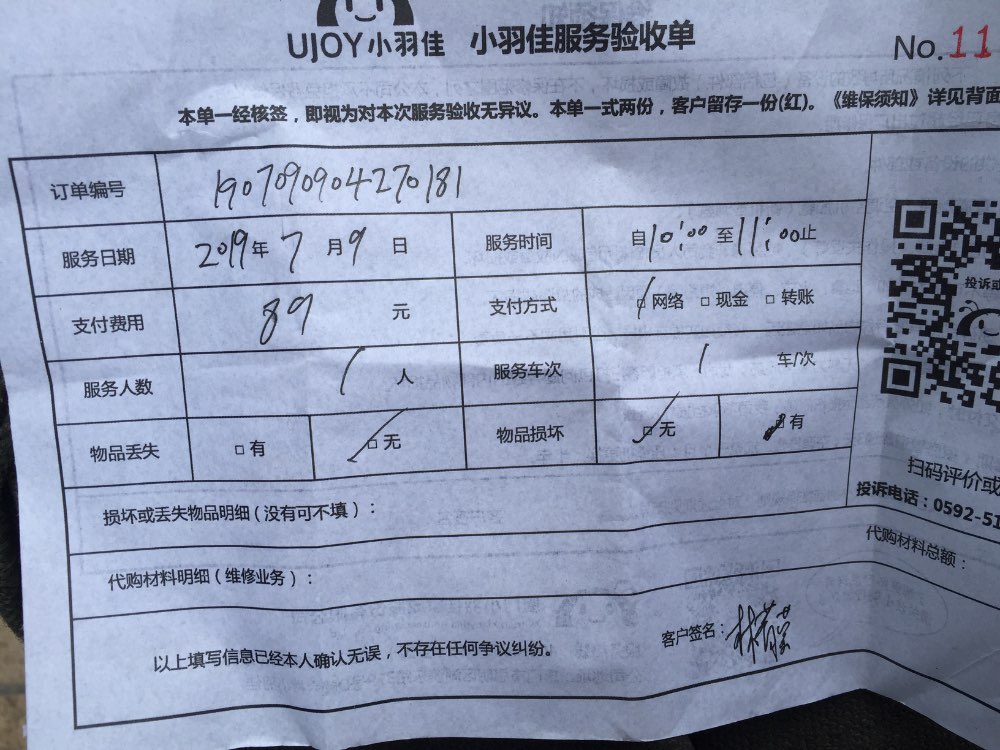 UJOY小羽佳 小羽佳服务验收单
No.11
本单一经核签，即视为对本次服务验收无异议。本单一式两份，客户留存一份(红)。《维保须知》详见背面
订单编号 190709090427018​1
服务日期 2019年7月9日 服务时间 自10:00至11:00止
支付费用 89元 支付方式 □网络 □现金 □转账
服务人数 1人 服务车次 1车/次
物品丢失 □有 □无 物品损坏 □无 □有
损坏或丢失物品明细(没有可不填)：
代购材料明细(维修业务)：
代购材料总额：
以上填写信息已经本人确认无误，不存在任何争议纠纷。
客户签名：
投诉或
扫码评价或
投诉电话：0592-51